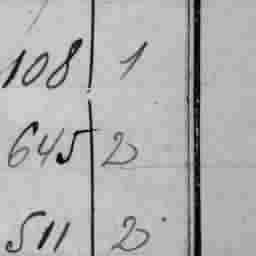 108 1
645 2
511 2